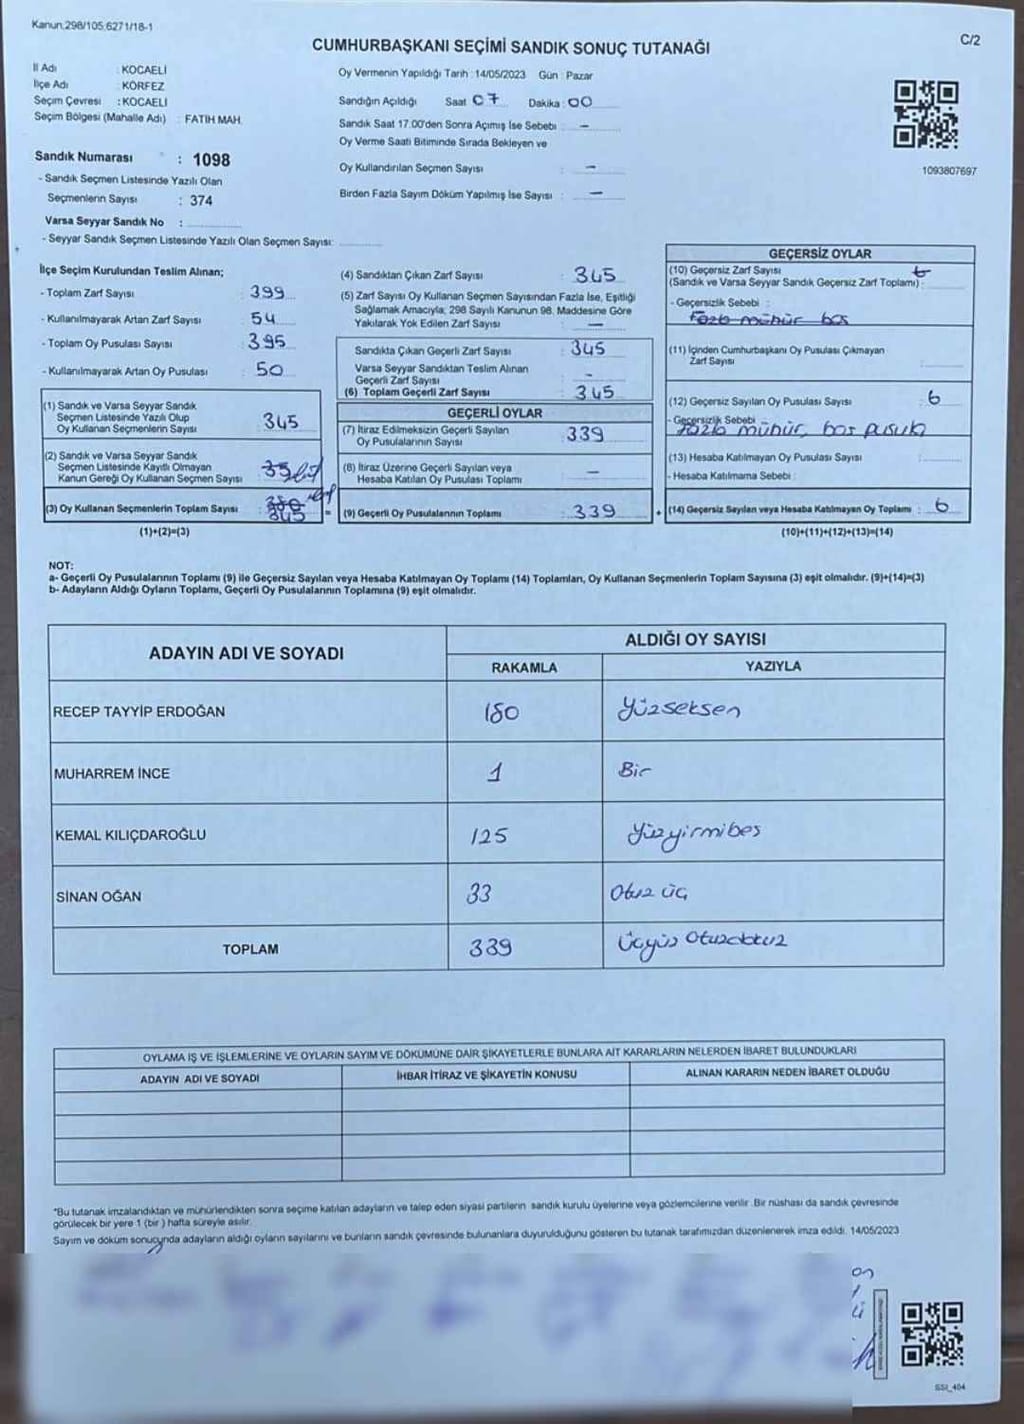 Kanun,298/105,6271/18-1
C/2
CUMHURBAŞKANI SEÇİMİ SANDIK SONUÇ TUTANAĞI
İl Adı : KOCAELİ
İlçe Adı : KÖRFEZ
Seçim Çevresi : KOCAELİ
Seçim Bölgesi (Mahalle Adı) : FATİH MAH.
Sandık Numarası : 1098
- Sandık Seçmen Listesinde Yazılı Olan
Seçmenlerin Sayısı : 374
Varsa Seyyar Sandık No :
- Seyyar Sandık Seçmen Listesinde Yazılı Olan Seçmen Sayısı:
Oy Vermenin Yapıldığı Tarih : 14/05/2023 Gün : Pazar
Sandığın Açıldığı Saat 07 Dakika : 00
Sandık Saat 17.00'den Sonra Açımış İse Sebebi : -
Oy Verme Saati Bitiminde Sırada Bekleyen ve
Oy Kullandırılan Seçmen Sayısı : -
Birden Fazla Sayım Döküm Yapılmış İse Sayısı : -
1093807697
İlçe Seçim Kurulundan Teslim Alınan;
- Toplam Zarf Sayısı : 399
- Kullanılmayarak Artan Zarf Sayısı : 54
- Toplam Oy Pusulası Sayısı : 395
- Kullanılmayarak Artan Oy Pusulası : 50
(1) Sandık ve Varsa Seyyar Sandık
Seçmen Listesinde Yazılı Olup
Oy Kullanan Seçmenlerin Sayısı : 345
(2) Sandık ve Varsa Seyyar Sandık
Seçmen Listesinde Kayıtlı Olmayan
Kanun Gereği Oy Kullanan Seçmen Sayısı
(3) Oy Kullanan Seçmenlerin Toplam Sayısı : 345 =
(1)+(2)=(3)
(4) Sandıktan Çıkan Zarf Sayısı : 345
(5) Zarf Sayısı Oy Kullanan Seçmen Sayısından Fazla İse, Eşitliği
Sağlamak Amacıyla; 298 Sayılı Kanunun 98. Maddesine Göre
Yakılarak Yok Edilen Zarf Sayısı : -
Sandıkta Çıkan Geçerli Zarf Sayısı : 345
Varsa Seyyar Sandıktan Teslim Alınan
Geçerli Zarf Sayısı : -
(6) Toplam Geçerli Zarf Sayısı : 345
GEÇERLİ OYLAR
(7) İtiraz Edilmeksizin Geçerli Sayılan
Oy Pusulalarının Sayısı : 339
(8) İtiraz Üzerine Geçerli Sayılan veya
Hesaba Katılan Oy Pusulası Toplamı : -
(9) Geçerli Oy Pusulalarının Toplamı : 339 +
GEÇERSİZ OYLAR
(10) Geçersiz Zarf Sayısı
(Sandık ve Varsa Seyyar Sandık Geçersiz Zarf Toplamı) :
- Geçersizlik Sebebi :
Fazla mühür boş
(11) İçinden Cumhurbaşkanı Oy Pusulası Çıkmayan
Zarf Sayısı :
(12) Geçersiz Sayılan Oy Pusulası Sayısı : 6
- Geçersizlik Sebebi :
Fazla mühür, boş pusula
(13) Hesaba Katılmayan Oy Pusulası Sayısı :
- Hesaba Katılmama Sebebi :
(14) Geçersiz Sayılan veya Hesaba Katılmayan Oy Toplamı : 6
(10)+(11)+(12)+(13)=(14)
NOT:
a- Geçerli Oy Pusulalarının Toplamı (9) ile Geçersiz Sayılan veya Hesaba Katılmayan Oy Toplamı (14) Toplamları, Oy Kullanan Seçmenlerin Toplam Sayısına (3) eşit olmalıdır. (9)+(14)=(3)
b- Adayların Aldığı Oyların Toplamı, Geçerli Oy Pusulalarının Toplamına (9) eşit olmalıdır.
ADAYIN ADI VE SOYADI
ALDIĞI OY SAYISI
RAKAMLA YAZIYLA
RECEP TAYYİP ERDOĞAN 180 Yüzseksen
MUHARREM İNCE 1 Bir
KEMAL KILIÇDAROĞLU 125 Yüzyirmibeş
SİNAN OĞAN 33 Otuz üç
TOPLAM 339 Üçyüz Otuzdokuz
OYLAMA İŞ VE İŞLEMLERİNE VE OYLARIN SAYIM VE DÖKÜMÜNE DAİR ŞİKAYETLERLE BUNLARA AİT KARARLARIN NELERDEN İBARET BULUNDUKLARI
ADAYIN ADI VE SOYADI İHBAR İTİRAZ VE ŞİKAYETİN KONUSU ALINAN KARARIN NEDEN İBARET OLDUĞU
*Bu tutanak imzalandıktan ve mühürlendikten sonra seçime katılan adayların ve talep eden siyasi partilerin sandık kurulu üyelerine veya gözlemcilerine verilir. Bir nüshası da sandık çevresinde
görülecek bir yere 1 (bir ) hafta süreyle asılır.
Sayım ve döküm sonucunda adayların aldığı oyların sayılarını ve bunların sandık çevresinde bulunanlara duyurulduğunu gösteren bu tutanak tarafımızdan düzenlenerek imza edildi. 14/05/2023
SSI_404